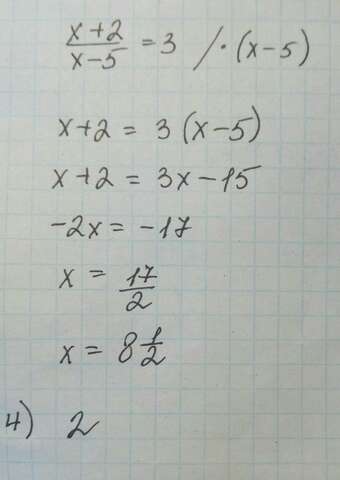 x+2/x-5 = 3 /·(x-5)
x+2 = 3(x-5)
x+2 = 3x-15
-2x = -17
x = 17/2
x = 8 1/2
4) 2